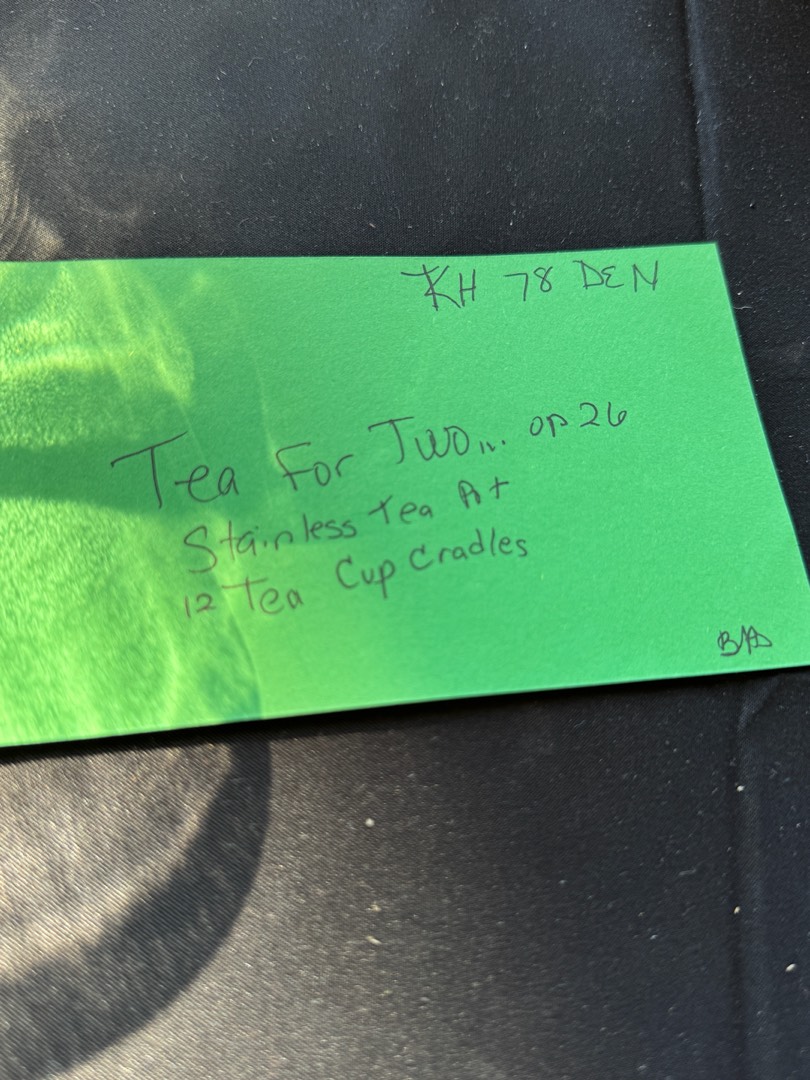 KH 78 DEN
Tea For Two... or 26
Stainless Tea Pot
12 Tea Cup Cradles